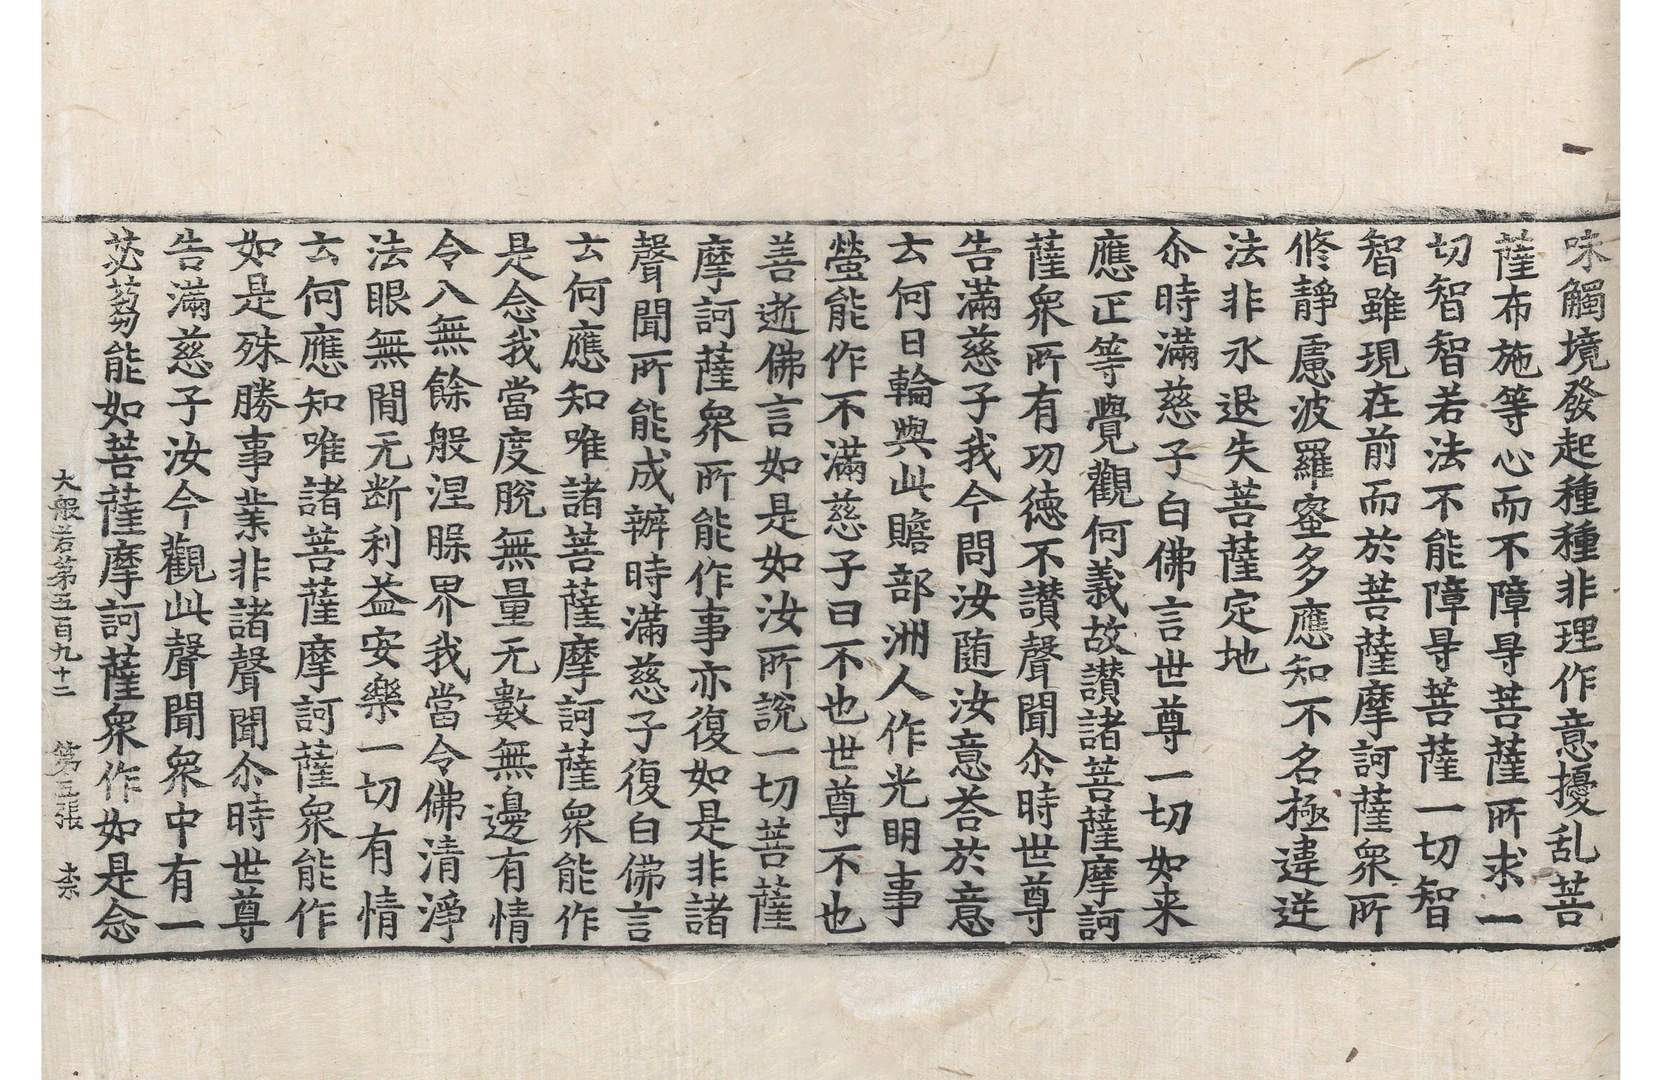 味觸境發起種種非理作意擾乱菩
薩布施等心而不障㝵菩薩所求一
切智智若法不能障㝵菩薩一切智
智雖現在前而於菩薩摩訶薩衆所
修靜慮波羅蜜多應知不名極違逆
法非永退失菩薩定地
尒時滿慈子白佛言世尊一切如来
應正等覺觀何義故讃諸菩薩摩訶
薩衆所有功德不讃聲聞尒時世尊
告滿慈子我今問汝随汝意荅於意
云何日輪與此贍部洲人作光明事
螢能作不滿慈子曰不也世尊不也
善逝佛言如是如汝所說一切菩薩
摩訶薩衆所能作事亦復如是非諸
聲聞所能成辦時滿慈子復白佛言
云何應知唯諸菩薩摩訶薩衆能作
是念我當度脫無量无數無邊有情
令入無餘般涅槃界我當令佛清淨
法眼無閒无断利益安樂一切有情
云何應知唯諸菩薩摩訶薩衆能作
如是殊勝事業非諸聲聞尒時世尊
告滿慈子汝今觀此聲聞衆中有一
苾芻能如菩薩摩訶薩衆作如是念
大般若第五百九十二 第五張 柰